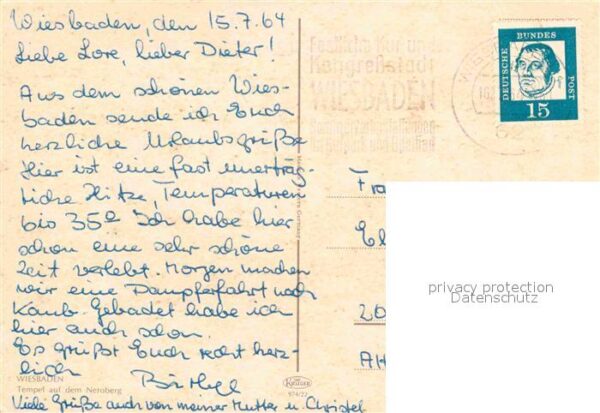 Wiesbaden, den 15.7.64
Liebe Lore, lieber Dieter!
Aus dem schönen Wies-
baden sende ich Euch
herzliche Urlaubsgrüße
Hier ist eine fast unerträg-
liche Hitze, Temperaturen
bis 35° Ich habe hier
schon eine sehr schöne
Zeit verlebt. Morgen machen
wir eine Dampferfahrt nach
Kaub. Gebadet habe ich
hier auch schon.
Es grüßt Euch recht herz-
lich
Viele Grüße auch von meiner Mutter u. Christel
WIESBADEN
Tempel auf dem Neroberg
Krüger
974/22
Festliche Kur und
Kongreßstadt
WIESBADEN
DEUTSCHE BUNDES POST
15
Fra
El
20
AH
privacy protection
Datenschutz